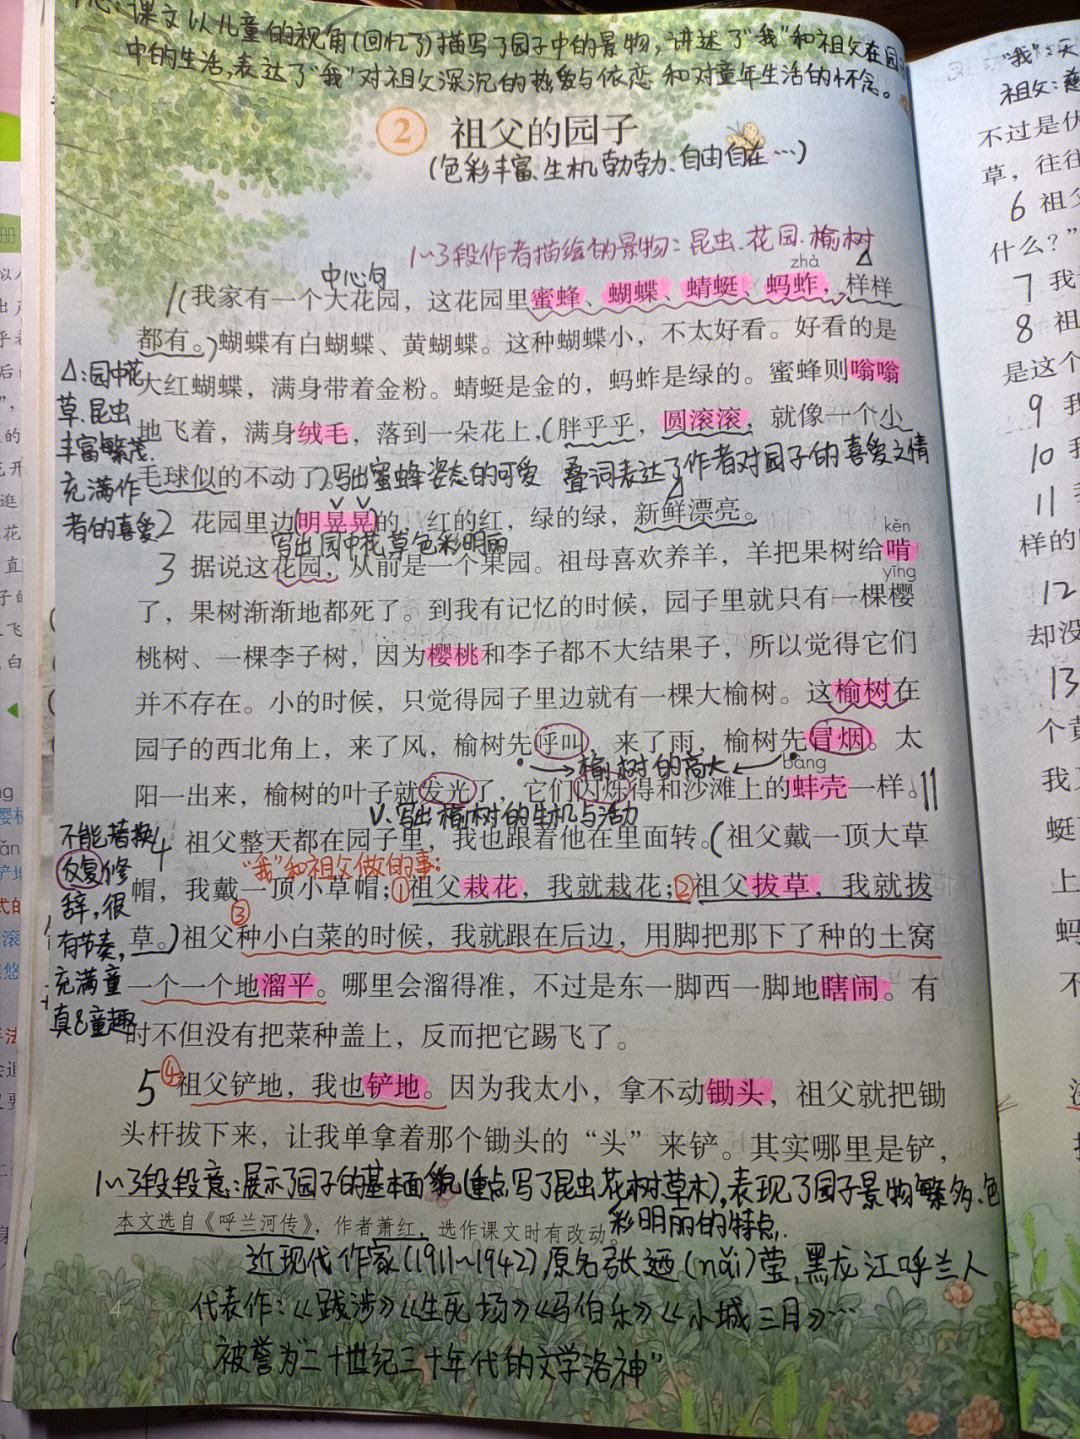 中心:课文以儿童的视角(回忆了)描写了园子中的景物,讲述了"我"和祖父在园子
中的生活,表达了"我"对祖父深沉的热爱与依恋 和对童年生活的怀念。
2 祖父的园子
(色彩丰富、生机勃勃、自由自在…)
1~3段作者描绘的景物:昆虫、花园、榆树
中心句
zhà
1(我家有一个大花园,这花园里蜜蜂、蝴蝶、蜻蜓、蚂蚱,样样
都有。)蝴蝶有白蝴蝶、黄蝴蝶。这种蝴蝶小,不太好看。好看的是
大红蝴蝶,满身带着金粉。蜻蜓是金的,蚂蚱是绿的。蜜蜂则嗡嗡
地飞着,满身绒毛,落到一朵花上,(胖乎乎,圆滚滚,就像一个小
毛球似的不动了。)写出蜜蜂姿态的可爱 叠词表达了作者对园子的喜爱之情
△:园中花
草、昆虫
丰富繁茂,
充满作
者的喜爱
2 花园里边(明晃晃)的,红的红,绿的绿,新鲜漂亮。
写出园中花草色彩明丽
kěn
3 据说这花园,从前是一个果园。祖母喜欢养羊,羊把果树给啃
yīng
了,果树渐渐地都死了。到我有记忆的时候,园子里就只有一棵樱
桃树、一棵李子树,因为樱桃和李子都不大结果子,所以觉得它们
并不存在。小的时候,只觉得园子里边就有一棵大榆树。这榆树在
园子的西北角上,来了风,榆树先呼叫,来了雨,榆树先冒烟。太
榆树的高大
bàng
阳一出来,榆树的叶子就发光了,它们闪烁得和沙滩上的蚌壳一样。
写出榆树的生机与活力
4 祖父整天都在园子里,我也跟着他在里面转。(祖父戴一顶大草
"我"和祖父做的事:
帽,我戴一顶小草帽;①祖父栽花,我就栽花;②祖父拔草,我就拔
草。)③祖父种小白菜的时候,我就跟在后边,用脚把那下了种的土窝
一个一个地溜平。哪里会溜得准,不过是东一脚西一脚地瞎闹。有
时不但没有把菜种盖上,反而把它踢飞了。
不能替换
反复修
辞,很
有节奏,
充满童
真&童趣
5 ④祖父铲地,我也铲地。因为我太小,拿不动锄头,祖父就把锄
头杆拔下来,让我单拿着那个锄头的“头”来铲。其实哪里是铲,
1~3段段意:展示了园子的基本面貌(重点写了昆虫、花、树、草木),表现了园子景物繁多、色
彩明丽的特点.
本文选自《呼兰河传》,作者萧红,选作课文时有改动。
近现代作家(1911~1942),原名张廼(nǎi)莹,黑龙江呼兰人
代表作:《跋涉》《生死场》《马伯乐》《小城三月》…
被誉为"二十世纪三十年代的文学洛神"
4
祖父:慈
不过是伏
草,往往
6 祖父
什么?”
7 我
8 祖
是这个
9 我
10 我
11 我
样的
12
却没
13
个黄
我
蜓
上
蚂
不